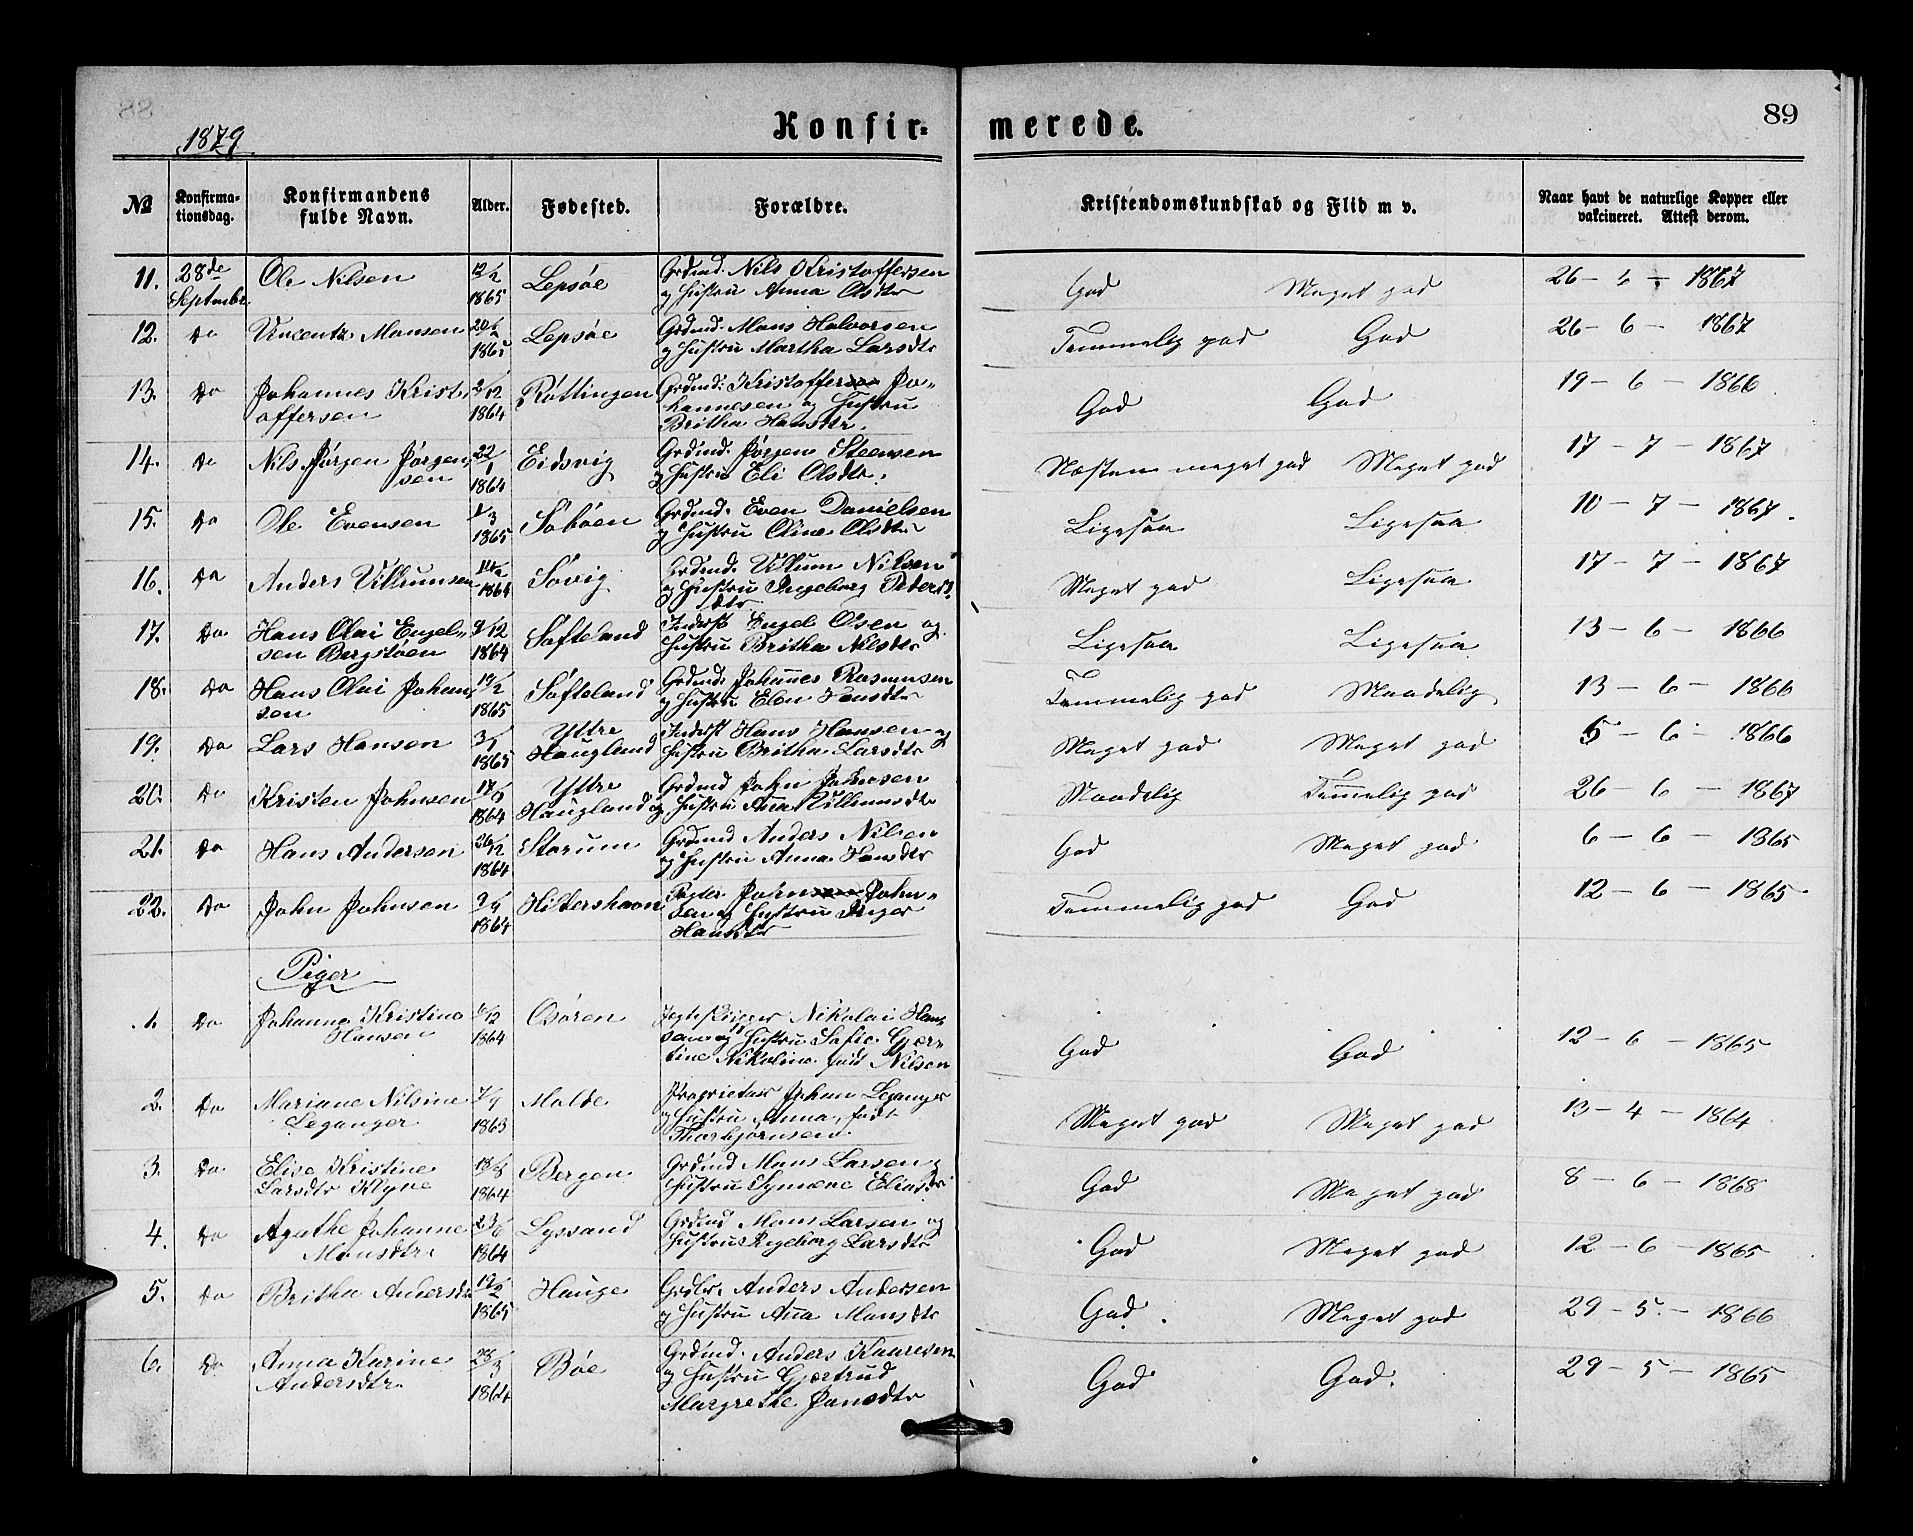 88
1879
Konfir-
merede.
89
№
Konfirma-
tionsdag.
Konfirmandens
fulde Navn.
Alder.
Fødested.
Forældre.
Kristendomskundskab og Flid m v.
Naar havt de naturlige Kopper eller
vakcineret. Attest derom.
11. 28de Septembr. Ole Nilsen 12/2 1865 Lepsøe Grdmd. Nils Kristoffersen
og Hustru Anna Olsdtr God Meget god 26 - 6 - 1867
12. Do Vincentz Monsen 1865 Lepsøe Grdmd. Mons Halvorsen
og Hustru Martha Larsdtr Temmelig god God 26 - 6 - 1867
13. Do Johannes Krist-
offersen 2/12 1864 Røttingen Grdmd. Kristoffer Jo-
hannesen og Hustru
Britha Hansdtr. God God 19 - 6 - 1866
14. Do Nils Jørgen Jørgen-
sen 22/1 1864 Eidsvig Grdmd. Jørgen Steensen
og Hustru Eli Olsdtr. Næsten meget god Meget god 17 - 7 - 1867
15. Do Ole Evensen 1/3 1865 Søbøen Grdmd. Even Danielsen
og Hustru Oline Olsdtr Ligesaa Ligesaa 10 - 7 - 1867.
16. Do Anders Villumsen 1864 Søvig Grdmd. Villum Nilsen
og Hustru Ingeborg Peders-
dtr Meget god Ligesaa 17 - 7 - 1867
17. Do Hans Olai Engel-
sen Bergstøen 9/12 1864 Søfteland Inderst Engel Olsen og
Hustru Britha Nilsdtr Ligesaa Ligesaa 13 - 6 - 1866
18. Do Hans Olai Johan-
sen 1865 Søfteland Grdmd. Johannes Rasmusen
og Hustru Elen Hansdtr Temmelig god Maadelig 13 - 6 - 1866
19. Do Lars Hansen 3/1 1865 Yttre
Haugland Inderst Hans Hansen og
Hustru Britha Larsdtr Meget god Meget god 5 - 6 - 1866
20. Do Kristen Johnsen 1864 Yttre
Haugland Grdmd John Johnsen
og Hustru Anna Villumsdtr Maadelig Temmelig god 26 - 6 - 1867
21. Do Hans Andersen 26/12 1864 Storum Grdmd Anders Nilsen
og Hustru Anna Hansdtr God Meget god 6 - 6 - 1865
22. Do John Johnsen 9/4 1864 Hiltershavn John John-
sen og Hustru Inger
Hansdtr Temmelig god God 12 - 6 - 1865.
Piger
1. Do Johanna Kristina
Hansen 6/12 1864 Osøren Jegteskipper Nikolai Han-
sen og Hustru Sofie Gjer-
tine Nikoline født Nilsen God God 12 - 6 - 1865
2. Do Mariane Nilsine
Leganger 1863 Molde Proprietær Johan Leganger
og Hustru Anna, født
Thorbjørnsen Meget god Meget god 13 - 4 - 1864
3. Do Elise Kristine
Larsdtr Klyve 18/8 1864 Bergen Grdmd Mons Larsen og
Hustru Symene God Meget god 8 - 6 - 1868
4. Do Agathe Johanne
Monsdtr. 23/6 1864 Lyssand Grdmd Mons Larsen og
Hustru Ingeborg Larsdtr God Meget god 12 - 6 - 1865
5. Do Britha Andersdtr 12/2 1865 Hauge Anders Andersen
og Hustru Ana Monsdtr God. Meget god 29 - 5 - 1866
6. Do Anna Karine
Andersdtr 28/3 1864 Bøe Grdmd. Anders Kaaresen
og Hustru Gjertrud
Margrethe Jansdtr God God. 29 - 5 - 1865